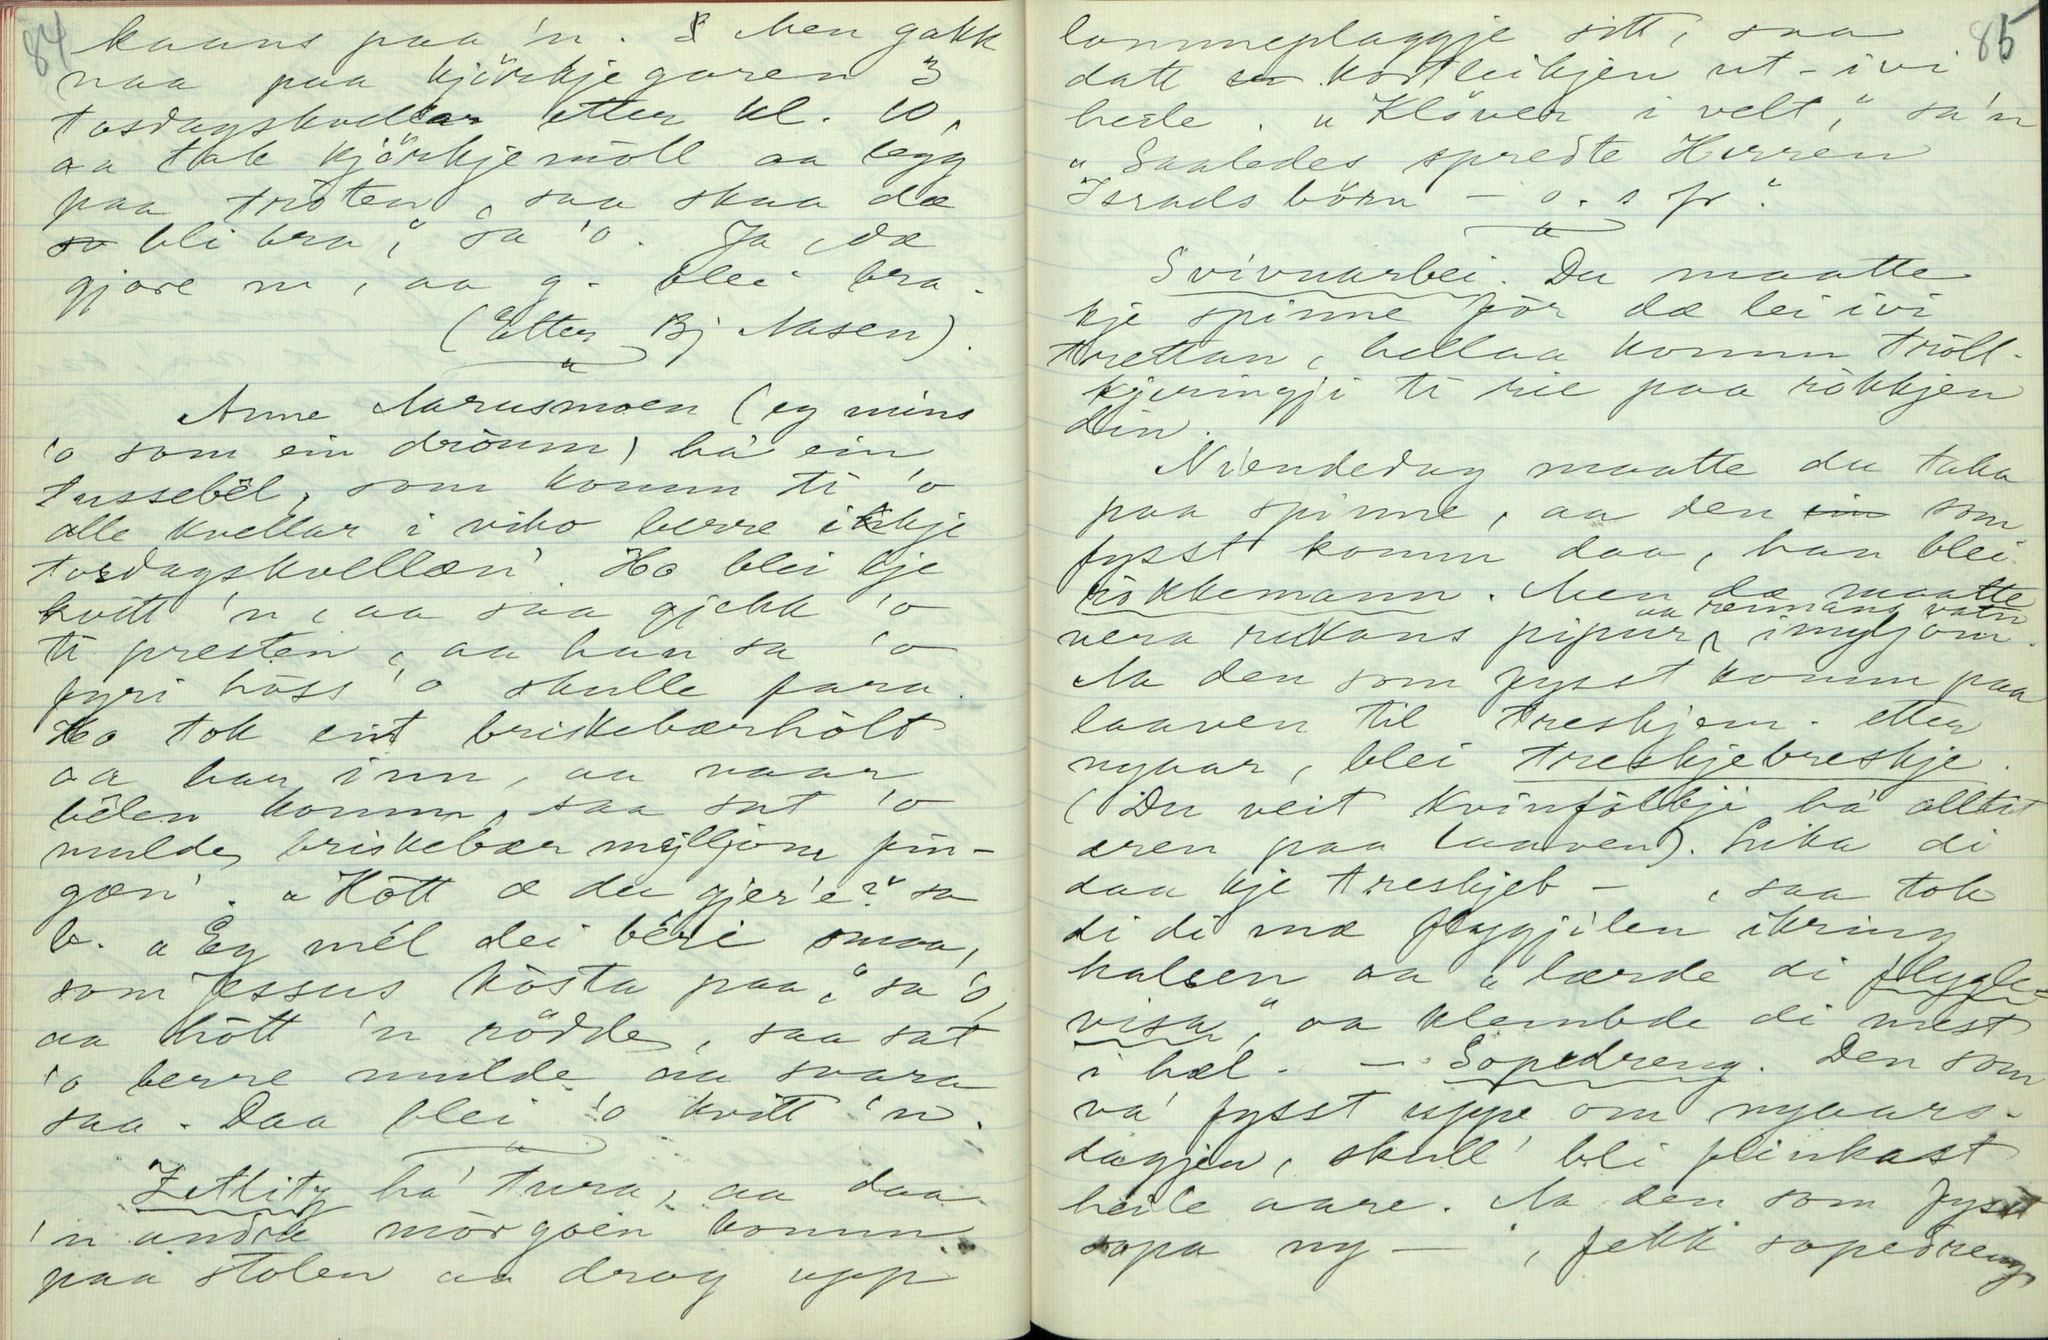 84
kaans paa 'n. Men gakk
naa paa kjörkjegaren 3
tosdagskvellar etter kl. 10,
aa tak kjörkjemöll aa legg
paa tröten, saa skaa dæ
bli bra," sa 'o. Ja, dæ
gjore m, aa g. blei bra.
(Etter Bj Aasen).
Anne Aarusmoen (eg mins
'o som ein dröum) ha' ein
tussebêl, som komm ti 'o
alle kvellar i viko berre ikkje
torsdagskvellæn'. Ho blei kje
kvitt 'n, aa saa gjekk 'o
ti presten, aa han sa 'o
fyri höss 'o skulle fara.
Ho tok eit briskebærhölt
aa bar inn, aa naar
bêlen komm, saa sat 'o
mulde briskebær mylljom fin-
gæn'. "Hött æ du gjer'e?" sa
b. "Eg mél dei béri smaa,
som Jessus kösta paa," sa 'o,
aa hött 'n rödde, saa sat
'o berre mulde aa svara
saa. Daa blei 'o kvitt 'n.
Zetlitz ha' tura, aa daa
'n andre mörgoen komm
paa stolen aa drog upp
85
lommeplaggje sitt, saa
datt kortleikjen ut-ivi
heile. "Klöver i velt," sa'n
"Saaledes spredte Herren
Israels börn – o. s fr."
Svivuarbei. Du maatte
kje spinne för dæ lei ivi
trettan, hellaa komm tröll-
kjeringji ti rie paa rökkjen
din.
Niendedag maatte du taka
paa spinne, aa den som
fysst komm daa, han blei
rökkemann. Men dæ maatte
vera rukans pipur, aa rennang vatn imyljom.
Aa den som fysst komm paa
laaven til treskjem. etter
nyaar, blei treskjebreskje.
(Du veit kvinfölkji ha' alltit
æren paa laaven). Lika di
daa kje treskjeb – , saa tok
di di mæ flygjilen ikring
halsen aa "lærde di flygle-
visa," aa klembde di mest
i hæl. – Sopedreng. Den som
va' fysst uppe om nyaars-
dagjen, skull' bli flinkast
heile aare. Aa den som fysst
sopa ny – , fekk sopedreng,